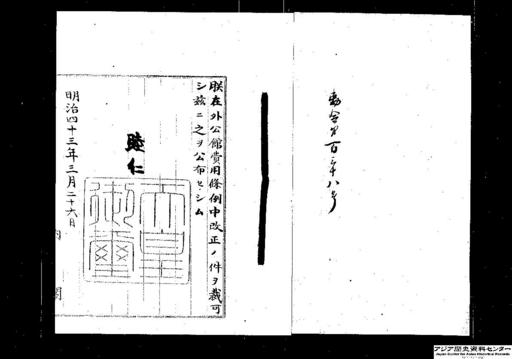 勅令第百三十八号
朕在外公館費用條例中改正ノ件ヲ裁可
シ茲ニ之ヲ公布セシム
睦仁
天皇御璽
明治四十三年三月二十六日
内閣
アジア歴史資料センター
Japan Center for Asian Historical Records